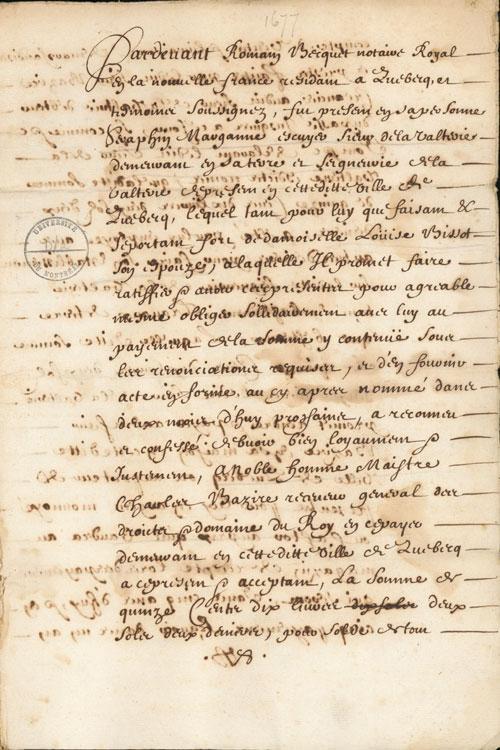 1677
Pardevant Romain Becquet notaire Royal
en la nouvelle france residant a Quebecq, et
tesmoins Soussignez, fut present en sa personne
Seraphin Marganne escuyer Sieur de la Valterie
demeurant en sa terre et Seigneurie de la
Valterie de present en cette ditte ville de
Quebecq, lequel tant pour luy que faisant &
se portant fort de damoiselle Louise Bissot
son espouze, a laquelle Il promet faire
ratiffier p autre ces presentes pour agreable
mesme obliger sollidairement avec luy au
payement de la Somme y contenuë Sous
les renonciations requises, et d'en fournir
acte en forme, au cy apres nommé dans
deux mois d'huy prochains, a reconnu
et confessé debvoir bien loyaument &
Justement, a Noble homme Maistre
Charles Bazire receveur general des
droicts & domaine du Roy en ce pays
demeurant en cette ditte ville de Quebecq
a ce present & acceptant, La Somme de
quinze Cents dix livres dix solz deux
solz deux deniers, pour solde de tout
UNIVERSITÉ
DE MONTRÉAL